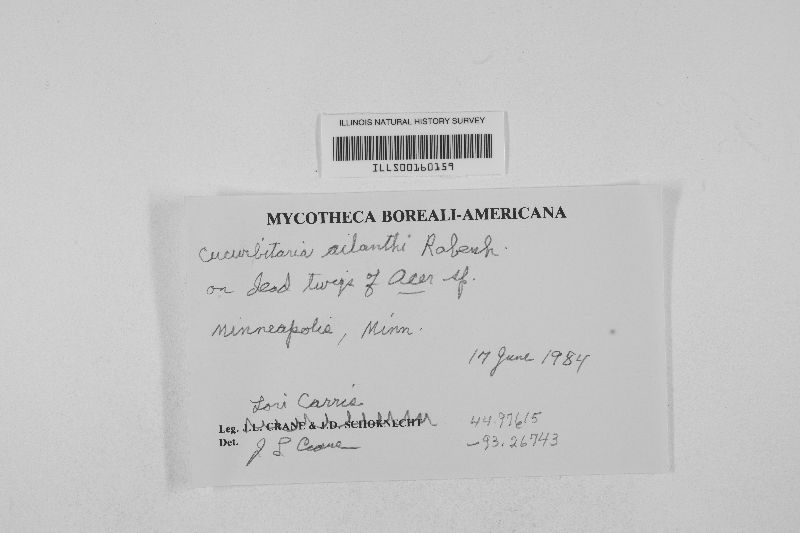 ILLINOIS NATURAL HISTORY SURVEY
ILLS00160159
MYCOTHECA BOREALI-AMERICANA
Cucurbitaria ailanthi Rabenh.
on dead twigs of Acer sp.
Minneapolis, Minn.
17 June 1984
Lori Carris
Leg. J.L. CRANE & J.D. SCHOKNECHT
44.97615
Det. J L Crane
-93.26743